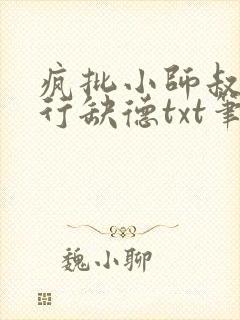 疯批小师叔
行缺德txt笔
魏小聊